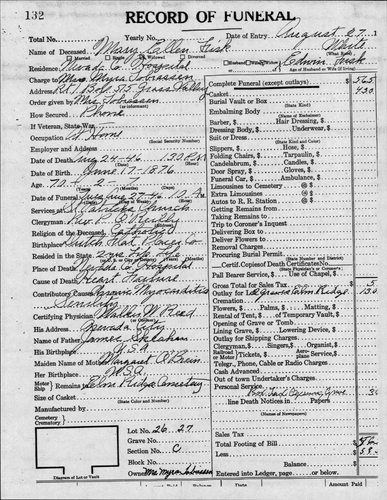 132
RECORD OF FUNERAL
Total No. Yearly No. Date of Entry August 27, 1
Name of Deceased Mary Ellen Fisk White
Residence Nevada C. Hospital Husband Edwin Fisk
Charge to Mrs. Myra Tobiassen
Address Rt 1 Box 575 Grass Valley
Order given by Mrs Tobiassen
How Secured Phone
If Veteran, State War
Occupation At Home (Social Security Number)
Employer and Address
Date of Death Aug 24-46 1:30 P.M
Date of Birth June 17-1876
Age 70 - 2
Date of Funeral Aug 27-46
Services at St. Patricks Church
Clergyman Rev. O'Reilly
Religion of the Deceased Catholic
Birthplace Dutch Flat Placer Co
Resided in the State
Place of Death Nevada Co Hospital
Cause of Death Heart Failure
Contributory Causes Chronic Myocarditis
Senility
Certifying Physician Walter Reed
His Address Nevada City
Name of Father James
His Birthplace U.S.A.
Maiden Name of Mother Margaret O'Brien
Her Birthplace U.S.A.
Motor Ship Remains to Elm Ridge Cemetery
Size of Casket (State Color and Number)
Manufactured by
Cemetery
Crematory
Lot No. 26 27
Grave No.
Section No. C
Block No.
Owner Mrs Myra Tobiassen
Diagram of Lot or Vault
Complete Funeral (except outlays) $ 565
Casket 430
Burial Vault or Box (State Kind)
Embalming Body
Barber, $ Hair Dressing, $
Dressing Body, $ Underwear, $
Suit or Dress (State Kind and Color)
Slippers, $ Hose, $
Folding Chairs, $ Tarpaulin, $
Candelabrum, $ Candles, $
Door Spray, $ Gloves, $
Funeral Car, $ Ambulance, $
Limousines to Cemetery @ $
Extra Limousines @ $
Autos to R. R. Station @ $
Getting Remains from
Taking Remains to
Trip to Coroner's Inquest
Delivering Box to
Deliver Flowers to
Removal Charges
Procuring Burial Permit
Certif. Copies of Death Certificate
Pall Bearer Service, $ Use of Chapel, $
Gross Total for Sales Tax
Outlay for Lot
Cremation
Flowers, $ Palms, $ Matting, $
Rental of Tent, $ of Temporary Vault, $
Opening of Grave or Tomb
Lining Grave, $ Lowering Device, $
Outlay for Shipping Charges
Clergyman, $ Singers, $ Organist, $
Railroad or Motor Tickets, $ Aeroplane Service, $
Telegr., Phone, Cable or Radio Charges
Cash Advanced
Out of town Undertaker's Charges
Personal Service
line Death Notices in Papers
(Names of Newspapers)
Sales Tax
Total Footing of Bill
Less
Balance
Entered into Ledger, page or below.
Amount Paid